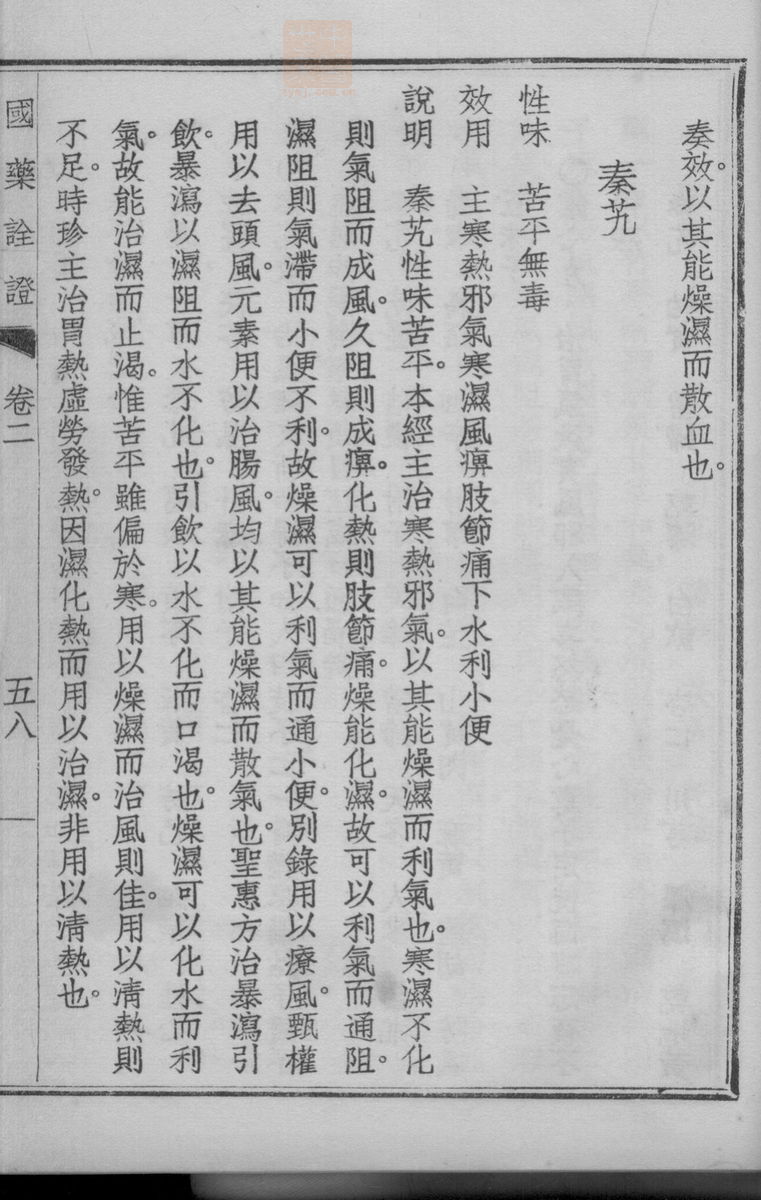 奏效。以其能燥濕而散血也。
秦艽
性味　苦平無毒
效用　主寒熱邪氣寒濕風痹肢節痛下水利小便
說明　秦艽性味苦平。本經主治寒熱邪氣。以其能燥濕而利氣也。寒濕不化
則氣阻而成風。久阻則成痹。化熱則肢節痛。燥能化濕。故可以利氣而通阻。
濕阻則氣滯而小便不利。故燥濕可以利氣而通小便。別錄用以療風。甄權
用以去頭風。元素用以治腸風。均以其能燥濕而散氣也。聖惠方治暴瀉引
飲。暴瀉以濕阻而水不化也。引飲以水不化而口渴也。燥濕可以化水而利
氣。故能治濕而止渴。惟苦平雖偏於寒。用以燥濕而治風則佳。用以清熱則
不足。時珍主治胃熱虛勞發熱。因濕化熱而用以治濕。非用以清熱也。
國藥詮證　卷二　五八